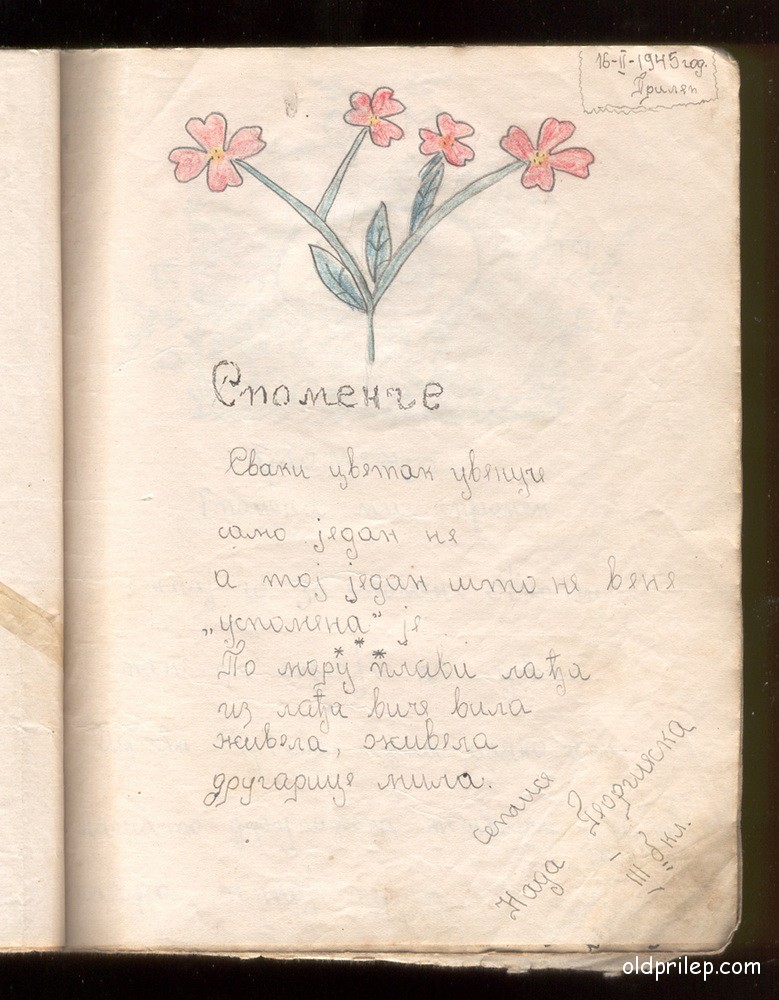 16-II-1945 год.
Прилеп
Споменче
Сваки цветак увенуће
само један не
а тој један што не вене
„успомена“ је
* * *
По мору плави лађа
из лађа виче вила
живела, живела
другарице мила.
сепадися
Нада Георгиеска
III "б" кл.
oldprilep.com